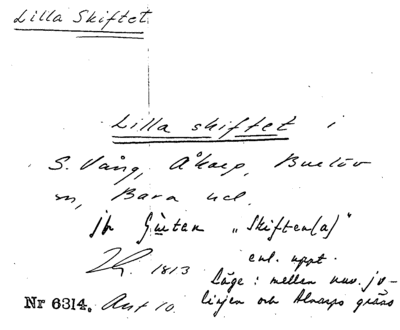 Lilla Skiftet
Lilla skiftet i
S. Vång, Åkarp, Burlöv
sn, Bara hd.
jb "Skiften(a)"
enl. uppt.
1813
Läge: mellan nuv. jv-
linjen och Alnarps gräns
Nr 6314. Ant 10.